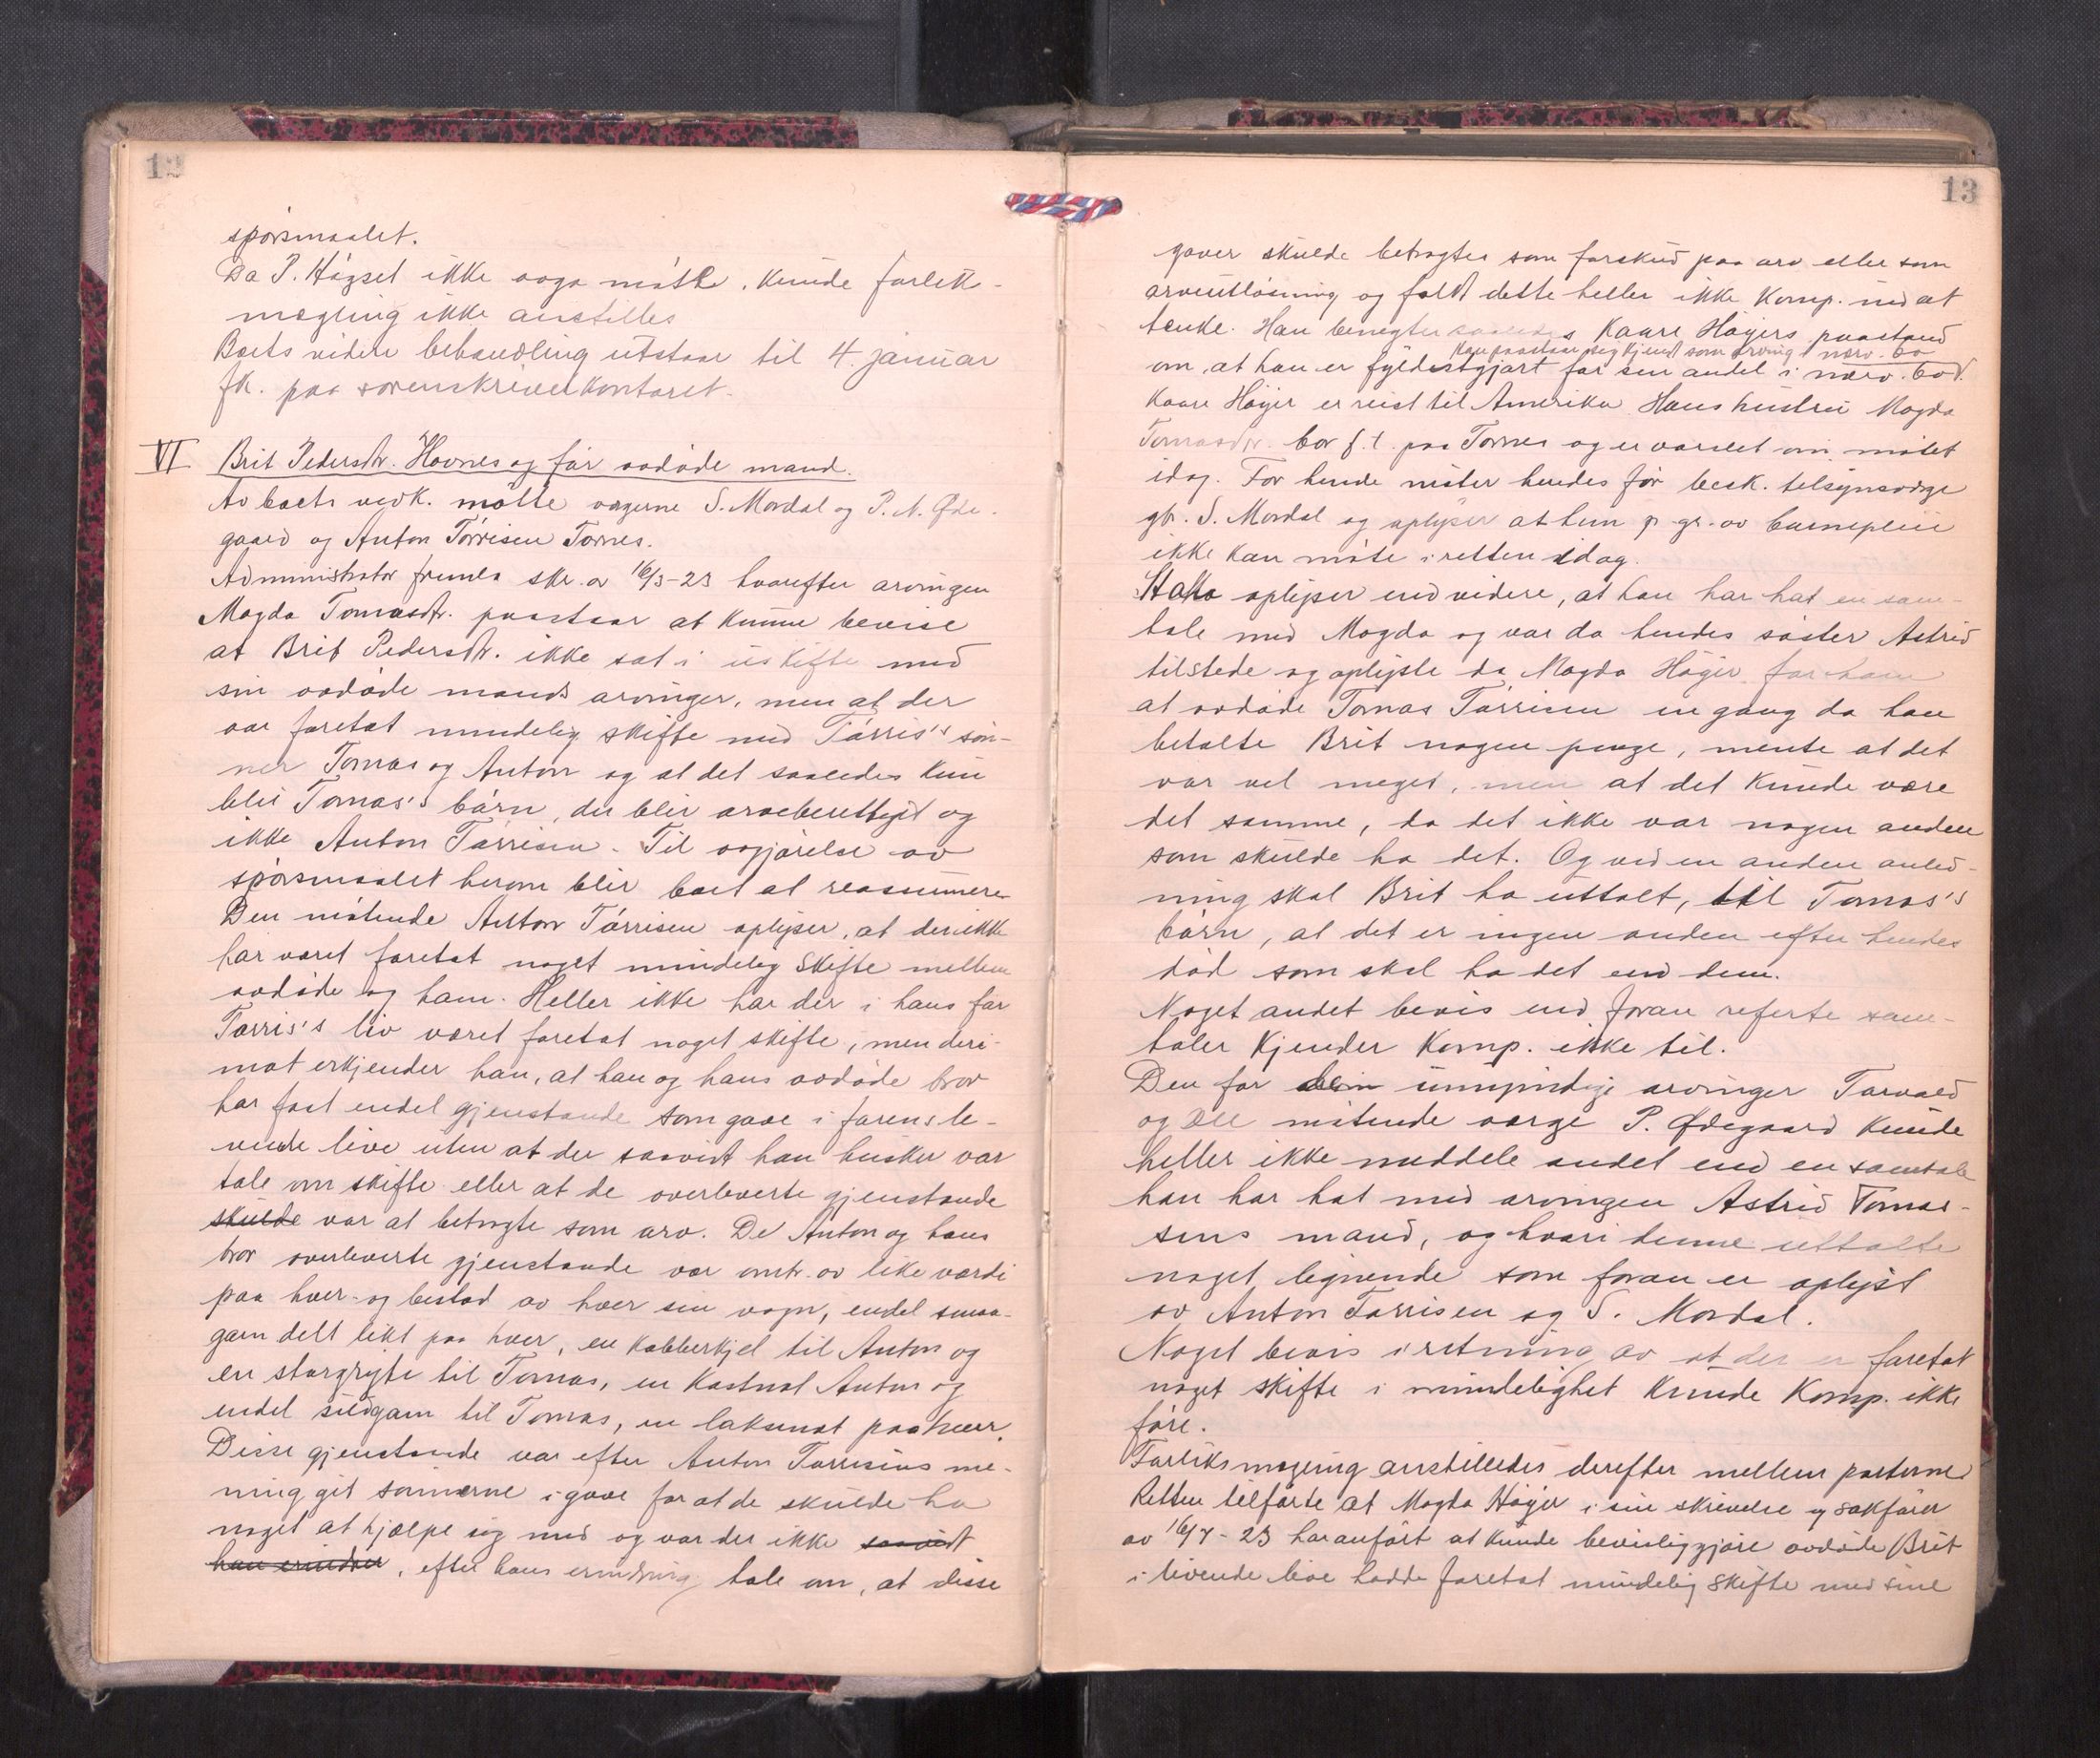 12
spørsmaalet.
Da P. Høgset ikke ogsa møtte, kunde forlik-
mægling ikke anstilles
Boets videre behandling utstaar til 4. januar
fk. paa sorenskriverkontoret.
VI Brit Pedersdtr. Hovnes og før avdøde mand.
Av boets vedk. møtte vergerne S. Mordal og P. N. Øde-
gaard og Anton Tørrisen Tornes.
Administrator fremla skr. av 16/3-23 hvorefter arvingen
Magda Tomasdtr. paastaar at kunne bevise
at Brit Pedersdtr. ikke sat i uskifte med
sin avdøde mands arvinger, men at der
var foretat mindelig skifte med Tørris's søn-
ner Tomas og Anton og at det saaledes kun
blir Tomas's børn, der blir arveberettiget og
ikke Anton Tørrisen. Til avgjørelse av
spørsmaalet herom blir boet at reassumere
Den møtende Anton Tørrisen oplyser, at der ikke
har været foretat noget mindelig skifte mellem
avdøde og ham. Heller ikke har der i hans far
Tørris's liv været foretat noget skifte, men deri-
mot erkjender han, at han og hans avdøde bror
har faat endel gjenstande som gave i farens le-
vende live uten at der saavidt han husker var
tale om skifte eller at de overleverte gjenstande
skulde var at betragte som arv. De Anton og hans
bror overleverte gjenstande var omtr. av like værdi
paa hver og bestod av hver sin vogn, endel smaa-
garn delt likt paa hver, en kobberkjel til Anton og
en storgryte til Tomas, en kastnot Anton og
endel sildgarn til Tomas, en laksenot paa hver.
Disse gjenstande var efter Anton Tørrisens me-
ning git sønnerne i gave for at de skulde ha
noget at hjælpe sig med og var der ikke saavidt
han erindrer, efter hans erindring tale om, at disse
13
gaver skulde betragtes som forskud paa arv eller som
arveutløsning og faldt dette heller ikke Komp. ind at
tænke. Han benegter saaledes Kaare Høgers paastand
Han paastaar sig kjendt som arving i nærv. bo
om, at han er fyldestgjort for sin andel i nærv. bod.
Kaare Höger er reist til Amerika. Hans hustru Magda
Tomasdtr. bor f. t. paa Tornes og er varslet om møtet
idag. For hende møter hendes før besk. tilsynsverge
gb. S. Mordal og oplyser at hun p. gr. av barnepleie
ikke kan møte i retten idag.
oplyser endvidere, at han har hat en sam-
tale med Magda og var da hendes søster Astrid
tilstede og oplyste da Magda Höger for ham
at avdøde Tomas Tørrisen en gang da han
betalte Brit nogen penge, mente at det
var vel meget, men at det kunde være
det samme, da det ikke var nogen anden
som skulde ha det. Og ved en anden anled-
ning skal Brit ha uttalt, til Tomas's
børn, at det er ingen anden efter hendes
død som skal ha det end dem.
Noget andet bevis end foran referte sam-
taler kjender Komp. ikke til.
Den for umyndige arvinger Torvald
og møtende verge P. Ødegaard kunde
heller ikke meddele andet end en samtale
han har hat med arvingen Astrid Tomas-
sens mand, og hvori denne uttalte
noget lignende som foran er oplyst
av Anton Tørrisen og S. Mordal.
Noget bevis i retning av at der er foretat
noget skifte i mindelighet kunde Komp. ikke
føre.
Forliksmægling anstilledes derefter mellem parterne
Retten tilførte at Magda Höger i sin skrivelse sakfører
av 16/7-23 har anført at kunde bevisliggjøre avdøde Brit
i levende live hadde foretat mindelig skifte med sine